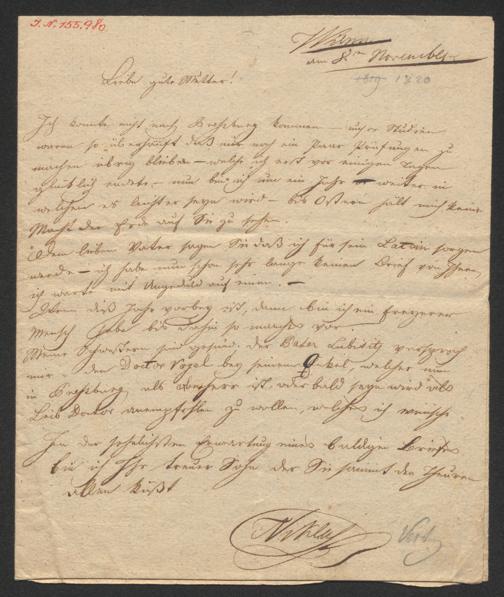 I.N. 155.980
Wien
am 8ten November
1819 1820
Liebe gute Mutter!
Ich konnte nicht nach Preßburg kommen – unsre Studien
waren so überhäuft daß mir noch ein Paar Prüfungen zu
machen übrig blieben – welche ich erst vor einigen Tagen
glücklich endete, – nun bin ich um ein Jahr – weiter in
welchem es leichter seyn wird – bis Ostern hält mich keine
Macht der Erde auf Sie zu sehn.
Dem lieben Vater sagen Sie daß ich für sein Latein sorgen
werde – ich habe nun schon sehr lange keinen Brief von Ihnen,
ich warte mit Ungeduld auf einen. –
Wenn dieß Jahr vorbey ist, dann bin ich ein freyerer
Mensch habe bis dahin so manches vor.
Meine Schwestern sind gesund. Der Vater versprach
mir den Doctor Vogel bey seinem Onkel, welcher nun
in Preßburg als ist, oder bald seyn wird als
Leib Doctor anempfehlen zu wollen, welches ich wünsche
In der sehnlichsten Erwartung eines baldigen Briefes
bin ich Ihr treuer Sohn der Sie sammt den Theuren
allen küßt
Niklas